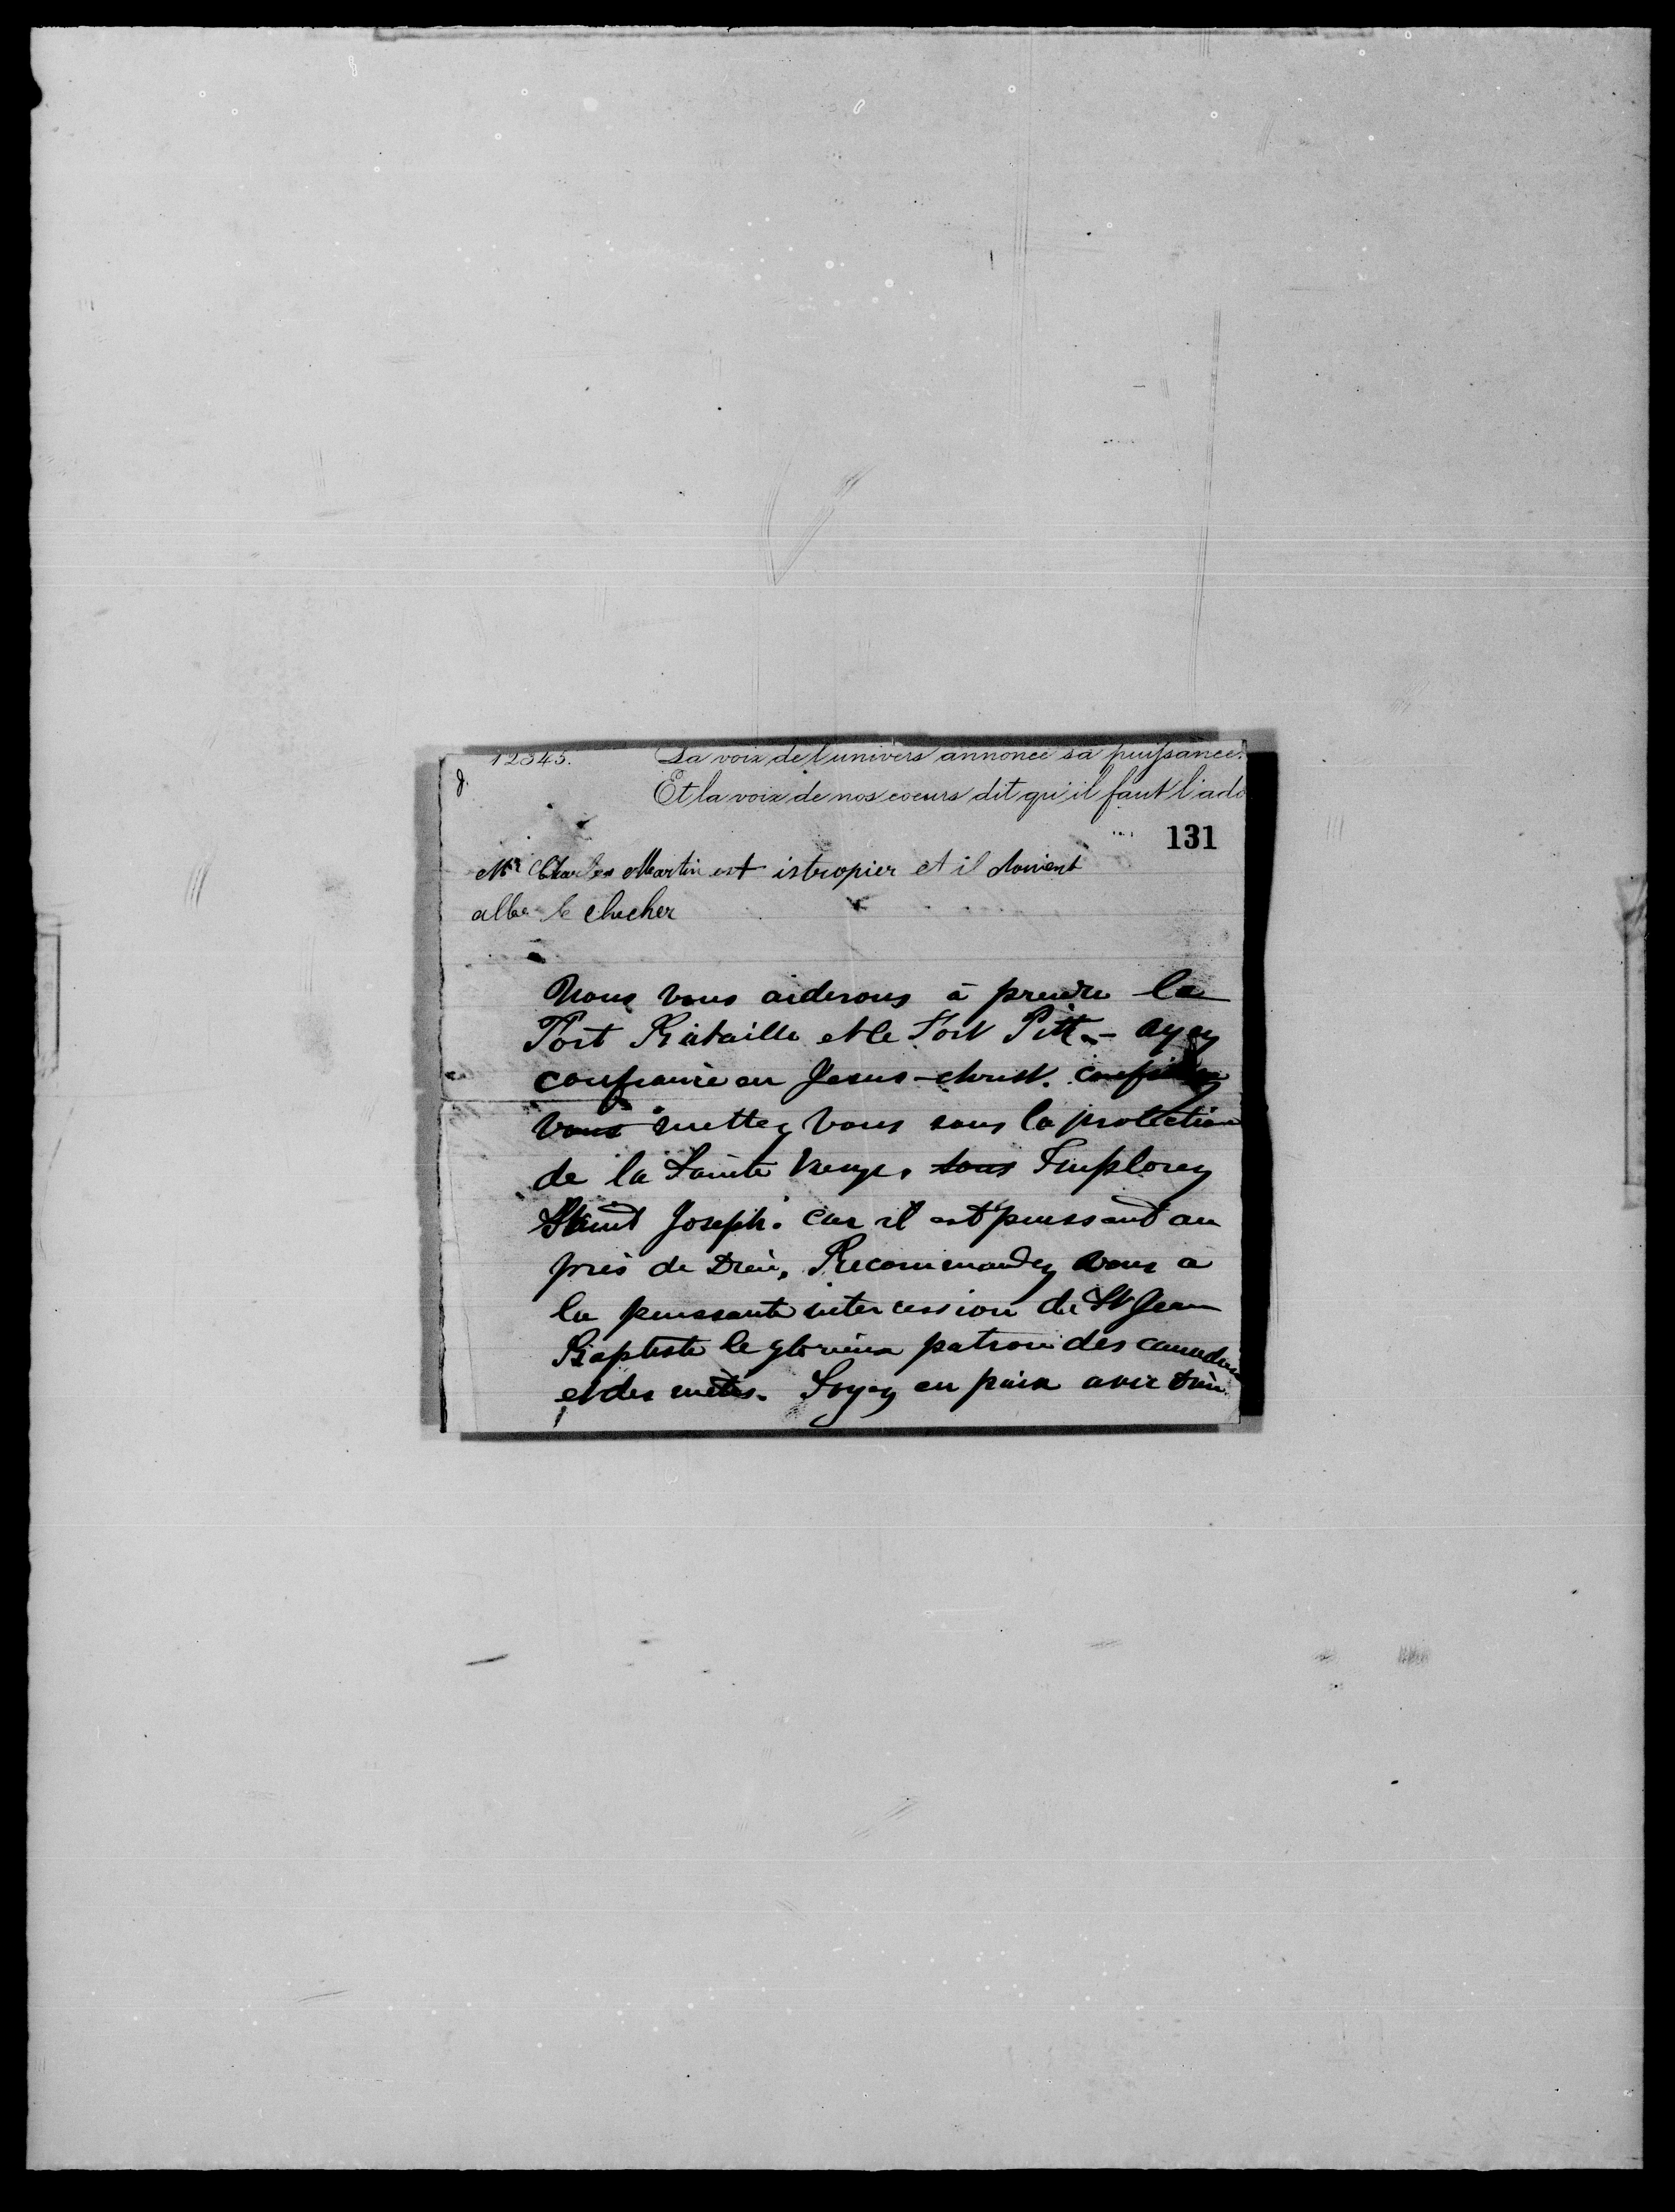 12345. La voix de l'univers annonce sa puissance.
J. Et la voix de nos coeurs dit qu'il faut l'ado
131
Mr Charles Martin est istropier et il doivent
aller le checher
Nous vous aiderons à prendre le
Fort Bataille et le Fort Pitt. - ayez
confiance en Jesus-christ.
vous mettez vous sous la protection
de la Sainte Vierge. sous Implorez
Saint Joseph. car il est puissant au
près de Dieu. Recommandez vous a
la puissante intercession de St Jean
Baptiste le glorieux patron des canadiens
et des métis. Soyez en paix avec Dieu.